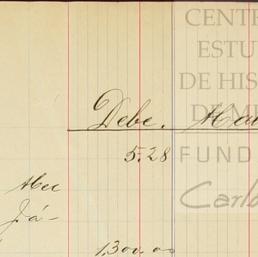 CENT
ESTU
DE HIS
DE ME
Debe. Ha
5.28
FUND
Carlo
Já-
1,300.00